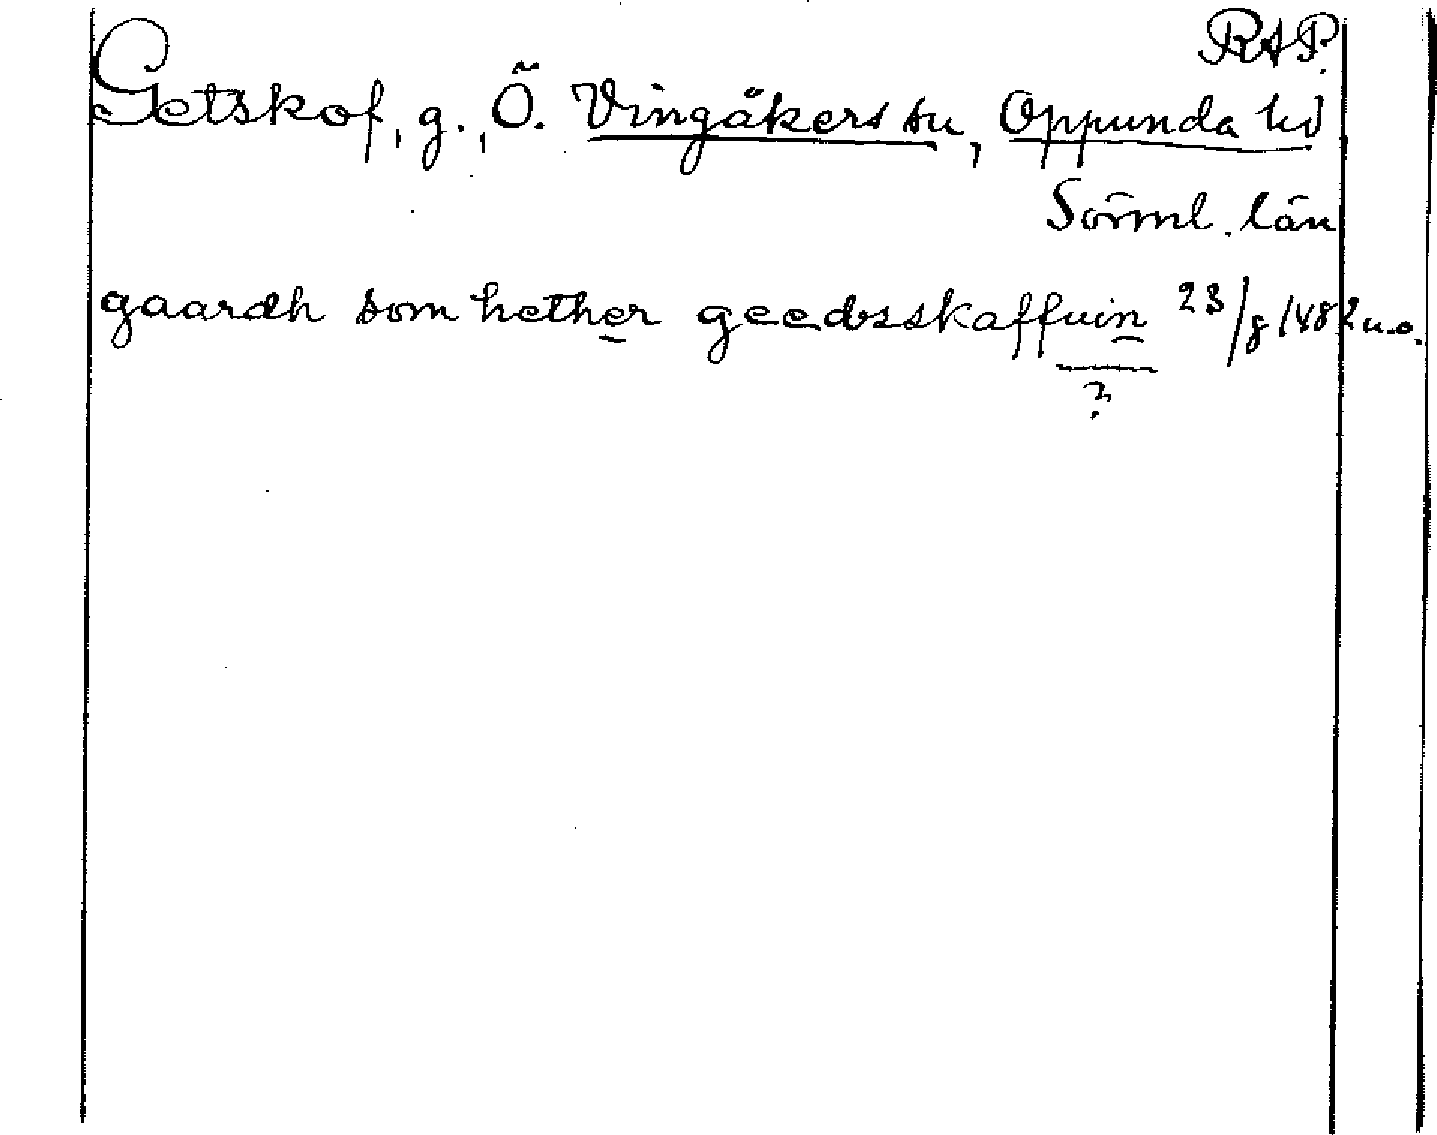 RAP.
Getskof, g., Ö. Vingåkers sn, Oppunda hd
Sörml. län
gaardh som hether geedzskaffuin 23/8 1482 u.o.
?